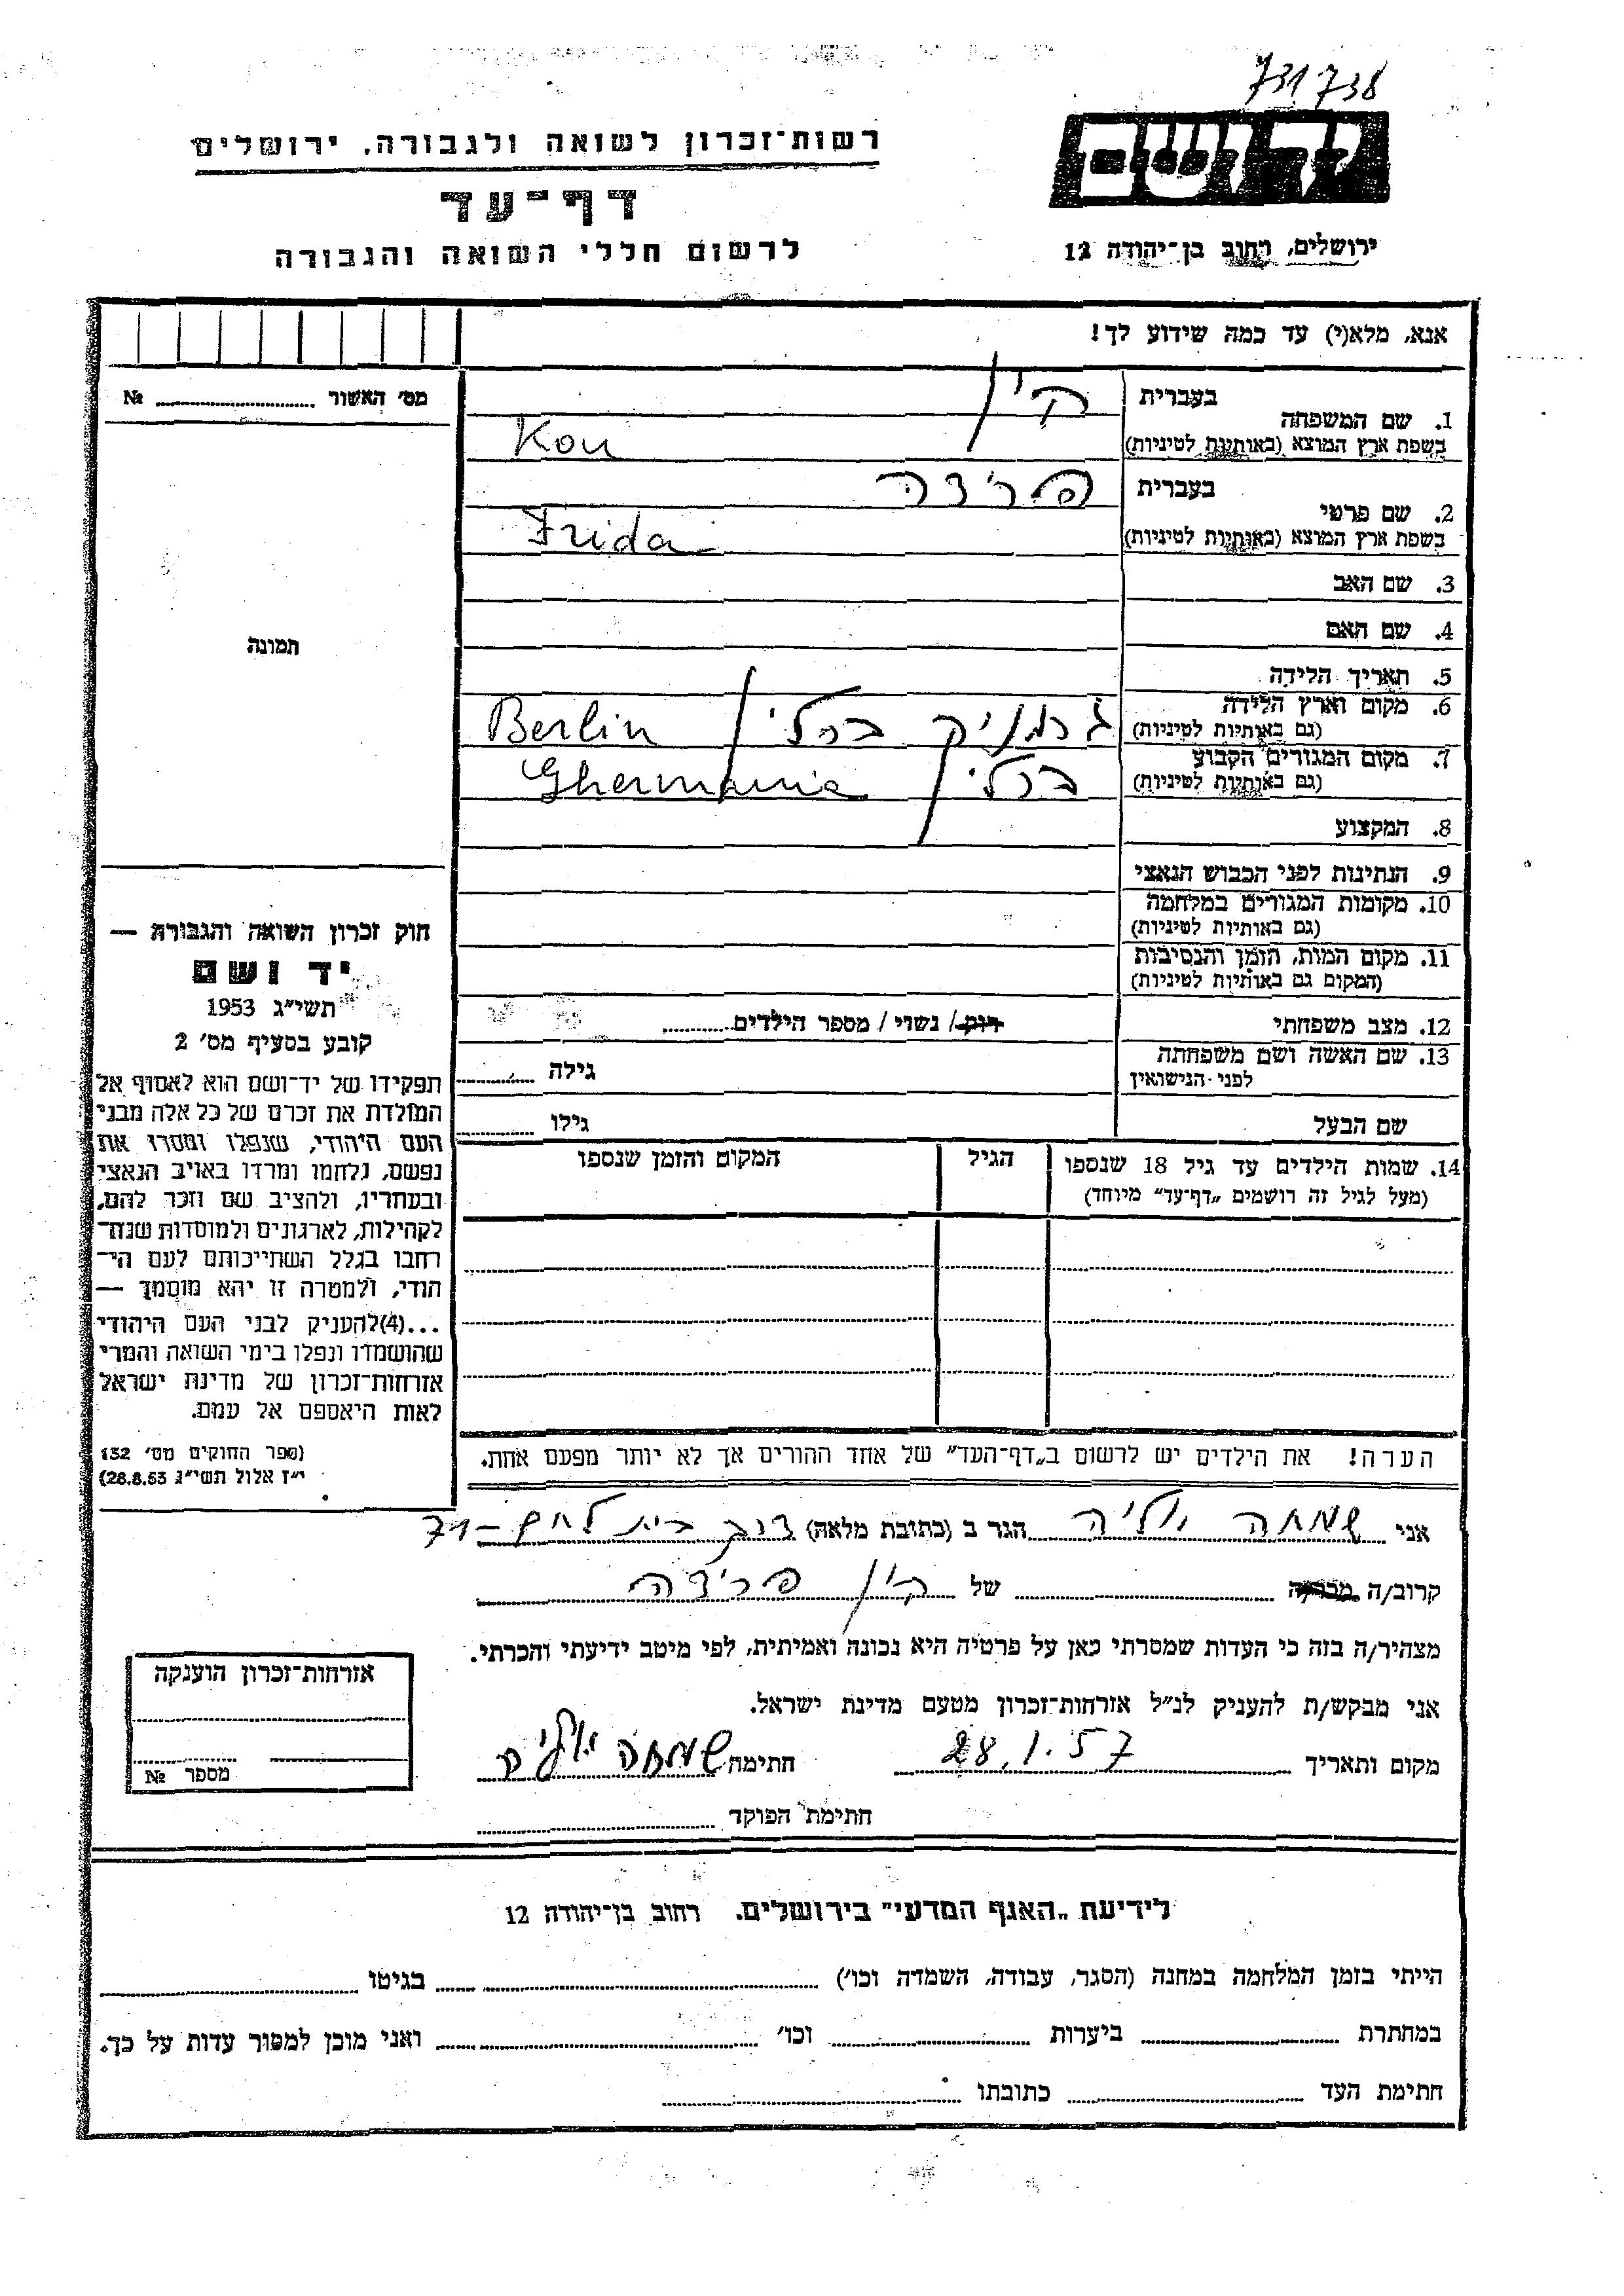 731738
רשות־זכרון לשואה ולגבורה, ירושלים
יד ושם
דף־עד
לרשום חללי השואה והגבורה
ירושלים, רחוב בן־יהודה 12
אנא, מלא(י) עד כמה שידוע לך!
מס׳ האשור № 
1. שם המשפחה בעברית קין
בשפת ארץ המוצא (באותיות לטיניות) Kon
2. שם פרטי בעברית פרידה
בשפת ארץ המוצא (באותיות לטיניות) Frida
3. שם האב
4. שם האם
תמונה
5. תאריך הלידה
6. מקום וארץ הלידה
(גם באותיות לטיניות) ברלין Berlin
7. מקום המגורים הקבוע
(גם באותיות לטיניות) ברלין Ghermania
8. המקצוע
9. הנתינות לפני הכבוש הנאצי
10. מקומות המגורים במלחמה
(גם באותיות לטיניות)
11. מקום המות, הזמן והנסיבות
(המקום גם באותיות לטיניות)
12. מצב משפחתי רווק / נשוי / מספר הילדים
13. שם האשה ושם משפחתה
לפני הנישואין גילה
שם הבעל גילו
14. שמות הילדים עד גיל 18 שנספו הגיל המקום והזמן שנספו
(מעל לגיל זה רושמים „דף־עד״ מיוחד)
חוק זכרון השואה והגבורה —
יד ושם
תשי״ג 1953
קובע בסעיף מס׳ 2
תפקידו של יד־ושם הוא לאסוף אל
המולדת את זכרם של כל אלה מבני
העם היהודי, שנפלו ומסרו את
נפשם, נלחמו ומרדו באויב הנאצי
ובעוזריו, ולהציב שם וזכר להם,
לקהילות, לארגונים ולמוסדות שנח־
רבו בגלל השתייכותם לעם הי־
הודי, ולמטרה זו יהא מוסמך —
...(4)להעניק לבני העם היהודי
שהושמדו ונפלו בימי השואה והמרי
אזרחות־זכרון של מדינת ישראל
לאות היאספם אל עמם.
(ספר החוקים מס׳ 132
י״ז אלול תשי״ג 28.8.53)
הערה! את הילדים יש לרשום ב„דף־העד״ של אחד ההורים אך לא יותר מפעם אחת.
אני שמחה הגר ב (כתובת מלאה) בית לחם – 71
קרוב/ה מכר/ה של קין פרידה
מצהיר/ה בזה כי העדות שמסרתי כאן על פרטיה היא נכונה ואמיתית, לפי מיטב ידיעתי והכרתי.
אני מבקש/ת להעניק לנ״ל אזרחות־זכרון מטעם מדינת ישראל.
מקום ותאריך 28.1.57 חתימה שמחה
חתימת הפוקד
אזרחות־זכרון הוענקה
מספר №
לידיעת „האגף המדעי״ בירושלים. רחוב בן־יהודה 12
הייתי בזמן המלחמה במחנה (הסגר, עבודה, השמדה וכו׳) בגיטו
במחתרת ביערות וכו׳ ואני מוכן למסור עדות על כך.
חתימת העד כתובתו